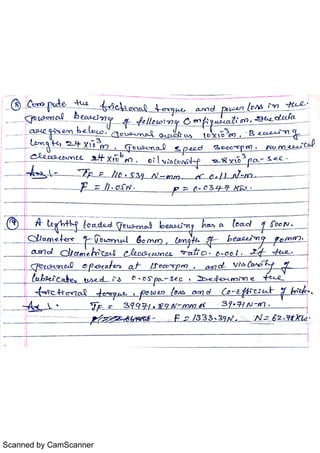 ⑧ Compute the frictional torque and power loss in the
Journal bearing of following Configuration. The data
are given below. Journal radius 10x10³m, Bearing
length 24x10³m, Journal speed 3000rpm,
clearance 24x10⁶m. oil viscosity 28x10³pa-sec.
Ans \- TF = 110.539 N-mm or 0.11 N-m.
F = 11.05N. P = 0.0347 KW.
⑨ A lightly loaded Journal bearing has a load of 500N.
Diameter of Journal 60mm, length of bearing 90mm.
and diametrical clearance ratio 0.001. If the
Journal operates at 1500rpm. and viscosity of
lubricates used is 0.05pa-sec. Determine the
frictional torque, power loss and Co-efficient of frictn.
Ans \- TF = 39971.89N-mm or 39.71N-m.
F = 1333.39N. N = 62.78KW.
Scanned by CamScanner